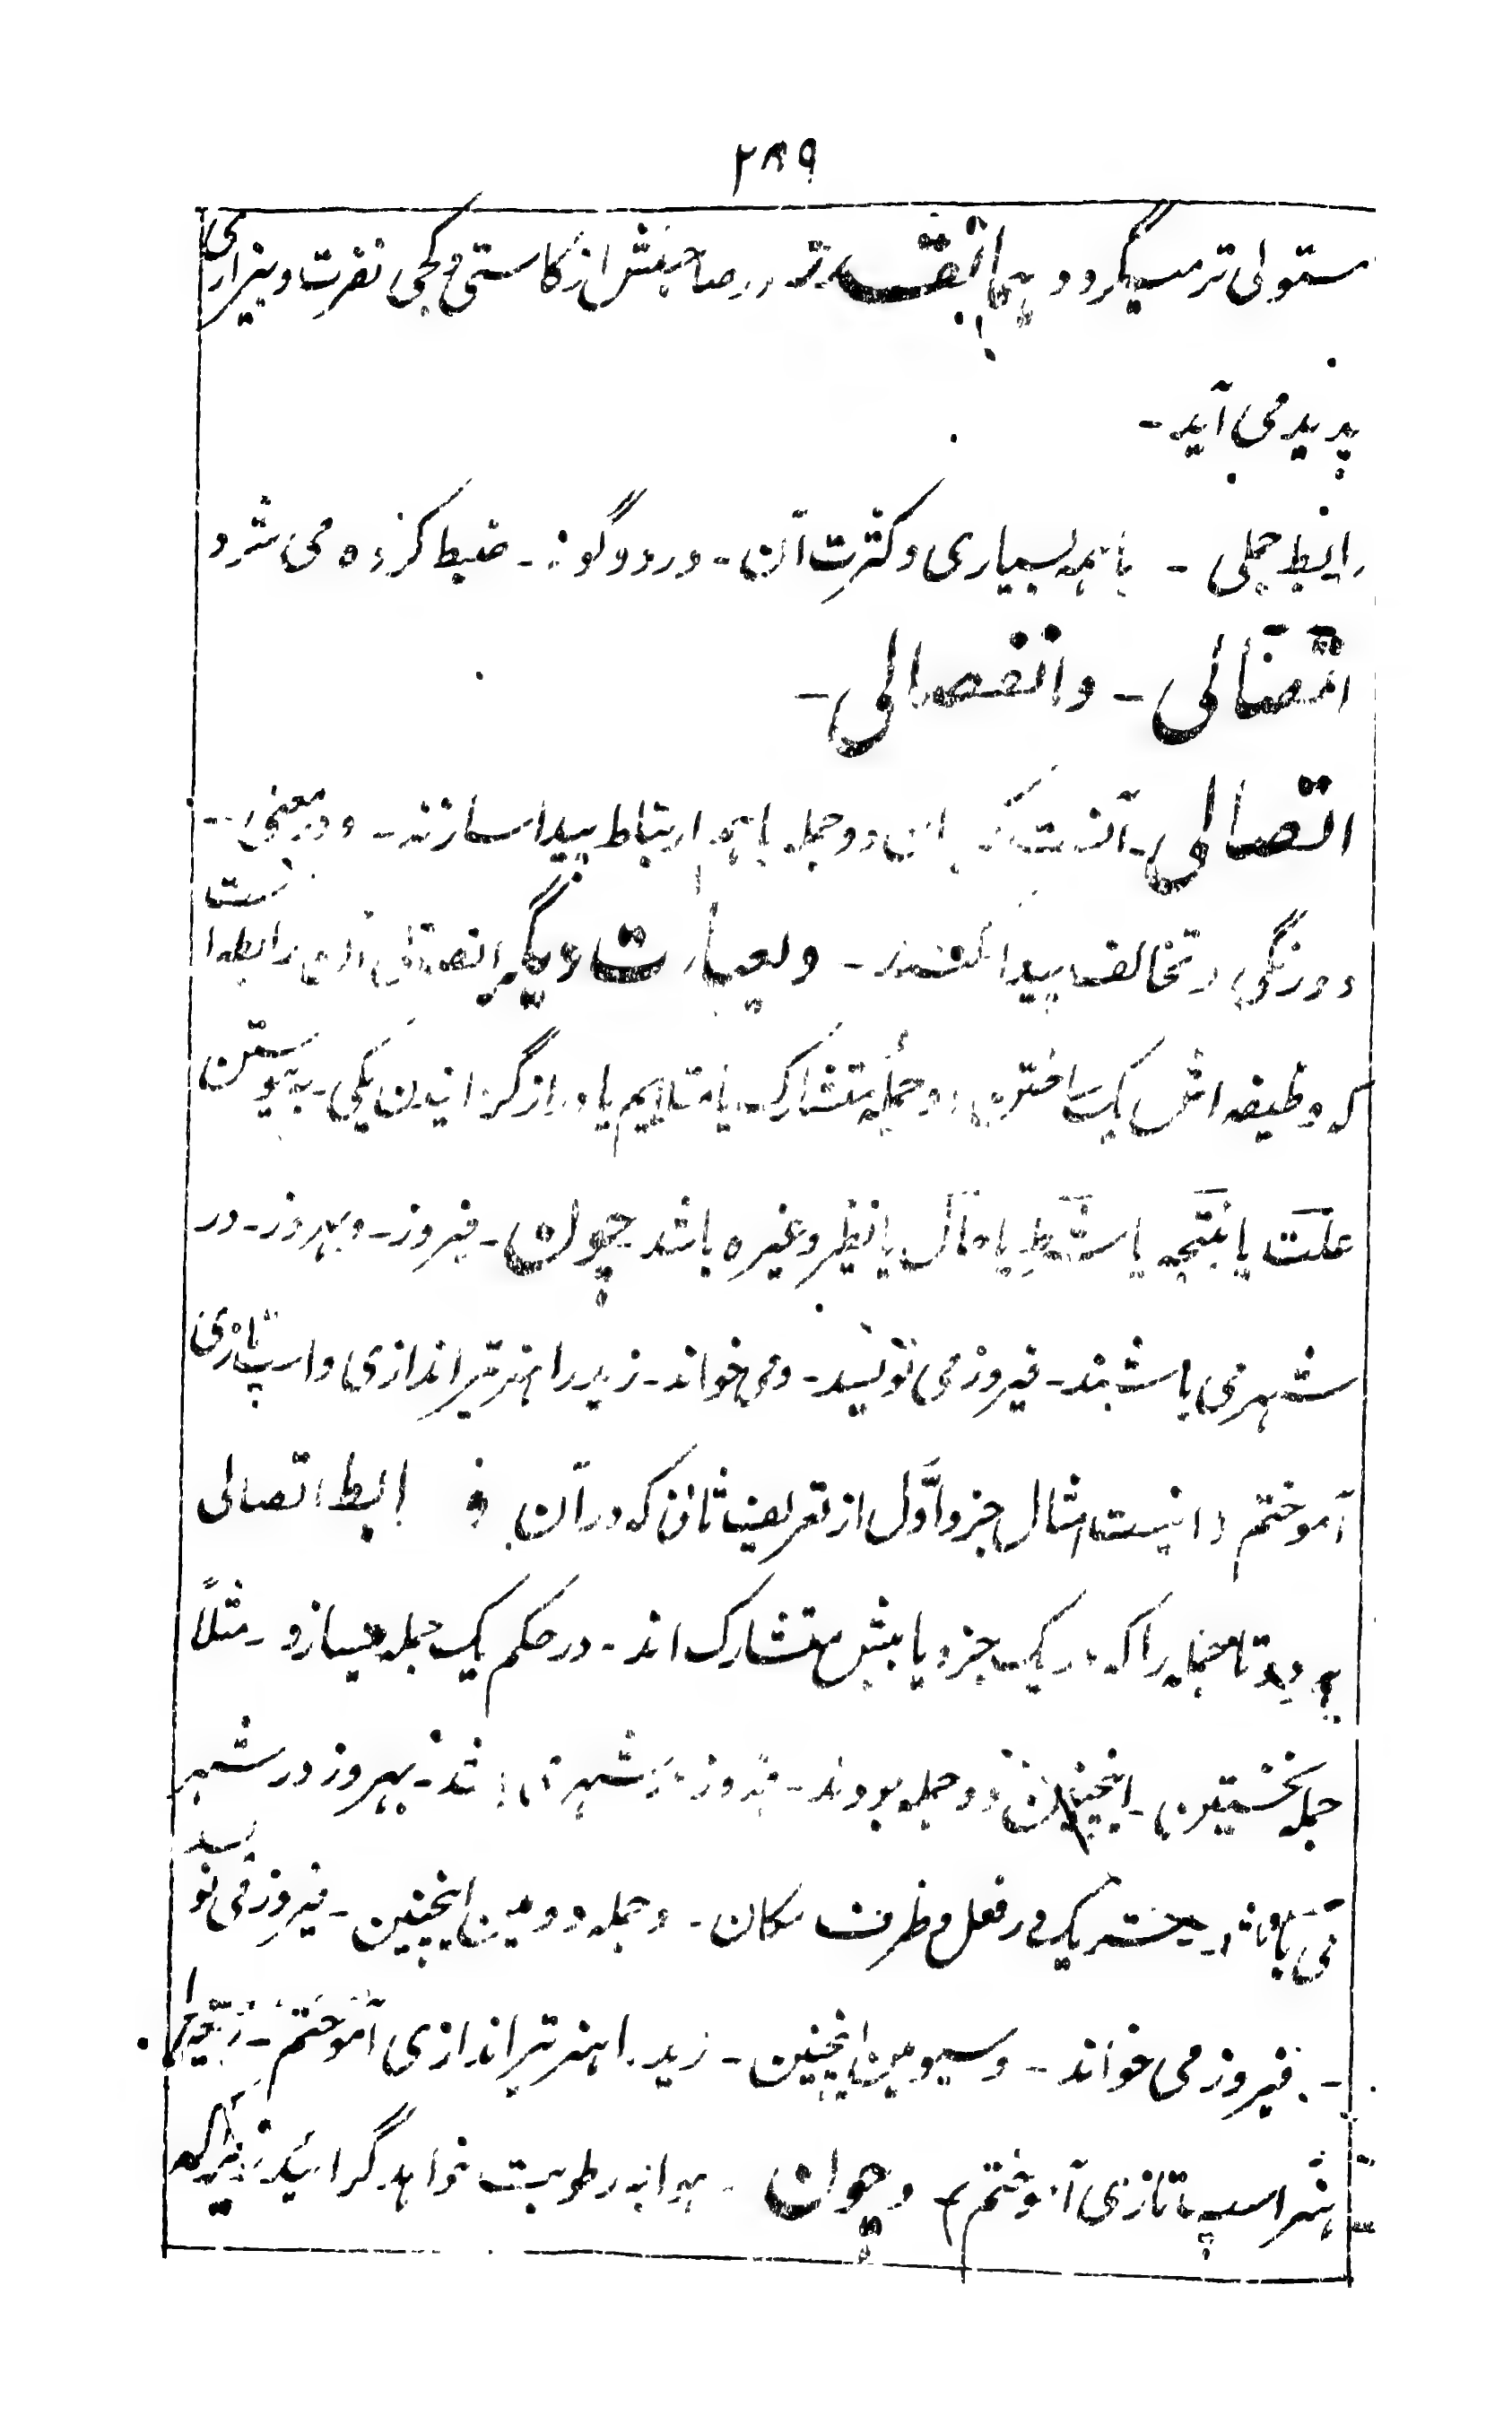 ۲۸۹
مستولی ترمیگردد و بهمانقدر در صاحبش از کاستی و کجی نفرت و بیزاری
پدید می آید ـ
رابط جملی ـ با همه بسیاری و کثرت آن ـ در دو گونه ـ ضبط کرده می شود
اتصالی ـ و انفصالی ـ
اتصالی ـ آنست که بدان دو جمله باهم ارتباط پیدا سازند ـ و در معنی ـ
دو رنگی و تخالف پیدا کنند ـ و بعبارت دیگر اتصالی آن رابط است
که وظیفه اش یک ساختن دو جمله متشارک یا متلایم یا دراز گردانیدن یکی به پیوستن
علت یا نتیجه یا شرط یا مآل یا نظیر و غیره باشد چون ـ فیروز ـ و بهروز ـ در
شهر می باشند ـ فیروز می نویسد ـ و می خواند ـ زید را هنر تیر اندازی و اسپ تازی
آموختم و اینست امثال جزو اول از تعریف ثانی که در آن رابط اتصالی
دو تا جمله را که در یک جزو یا بیش متشارک اند ـ در حکم یک جمله میسازد ـ مثلاً
جمله نخستین ـ اینچنین دو جمله بودند ـ فیروز در شهر می باشد ـ بهروز در شهر
می باشد شریک در فعل و ظرف مکان ـ و جمله دومین اینچنین ـ فیروز می نویسد
ـ فیروز می خواند ـ و سیومین اینچنین ـ زید را هنر تیر اندازی آموختم ـ زید را
هنر اسپ تازی آموختم و چون ـ هوا به رطوبت خواهد گرائید زیرا که